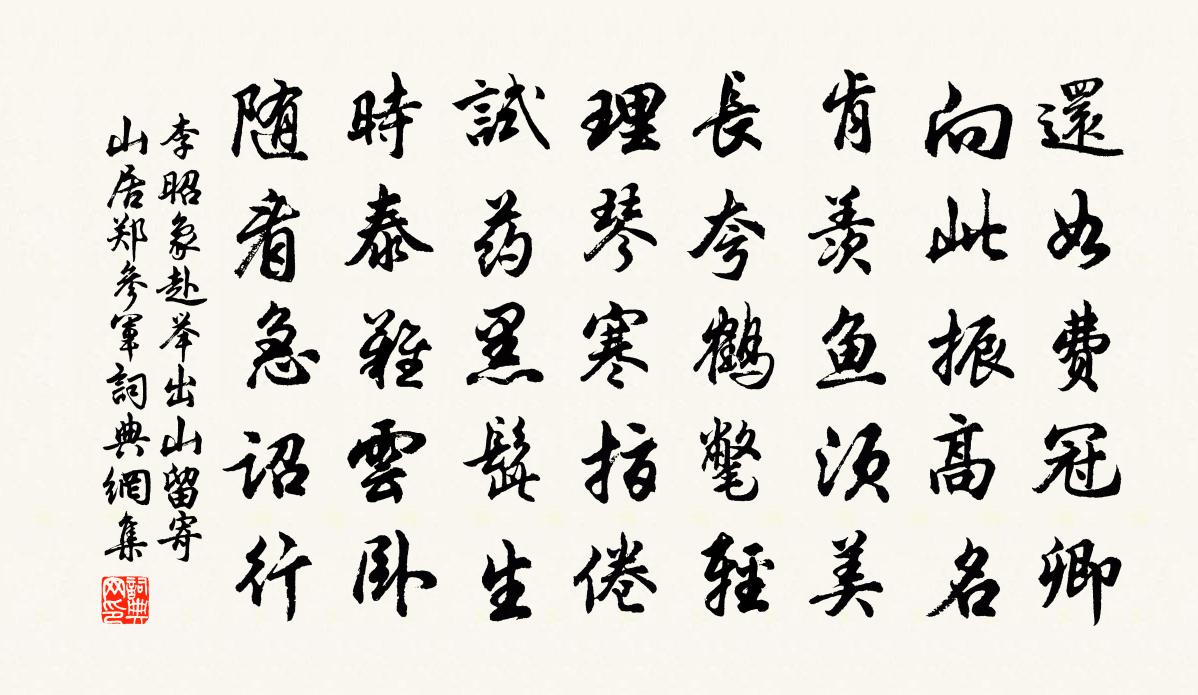 還如費冠卿
向此振高名
肯羨魚須美
長夸鶴氅輕
理琴寒指倦
試药黑髭生
時泰難雲卧
随看急诏行
李昭象赴举出山留寄
山居郑參軍詞典網集
詞典网印